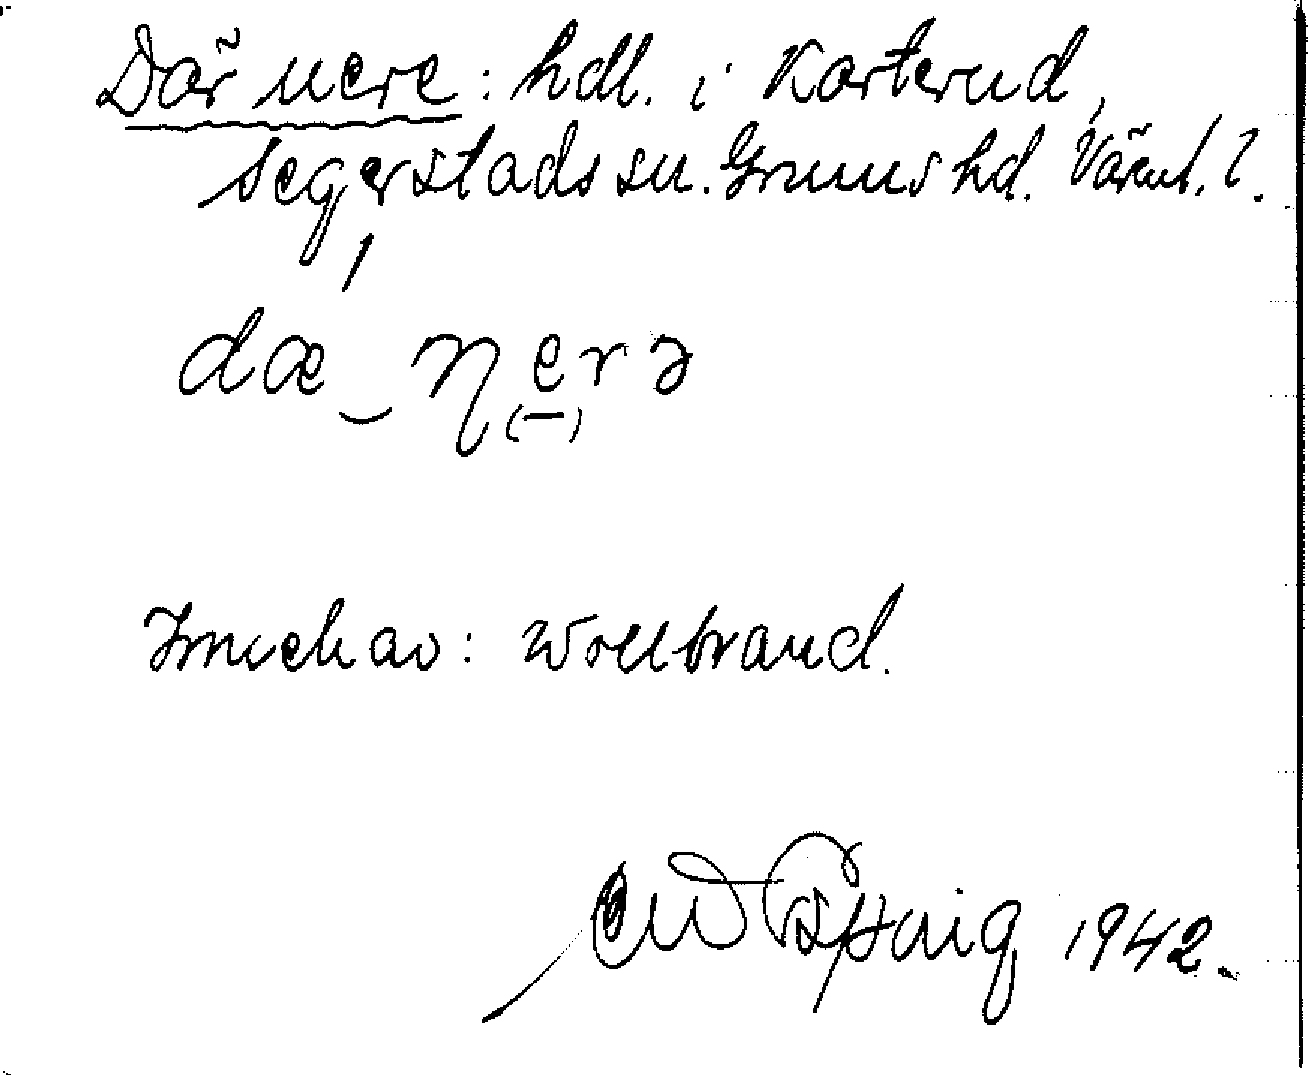 Där nere: hdl. i Karterud,
Segerstads sn. Grums hd. Värml. l.
dæ‿ηerə
Inneh av: Wollbrand.
1942.